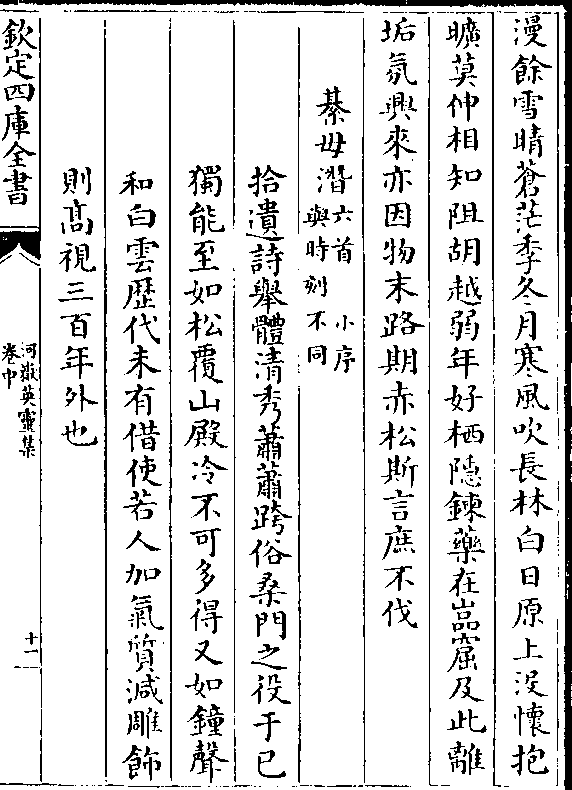 漫餘雪晴蒼茫季冬月寒風吹長林白日原上没懐抱
曠莫伸相知阻胡越弱年好栖隠鍊藥在嵓窟及此離
垢氛興來亦因物末路期赤松斯言庶不伐
綦毋潛六首 小序
與時刻不同
拾遺詩舉體清秀蕭蕭跨俗桑門之役于已
獨能至如松覆山殿冷不可多得又如鐘聲
和白雲歴代未有借使若人加氣質減雕飾
則髙視三百年外也
欽定四庫全書
河嶽英靈集
卷中
十一